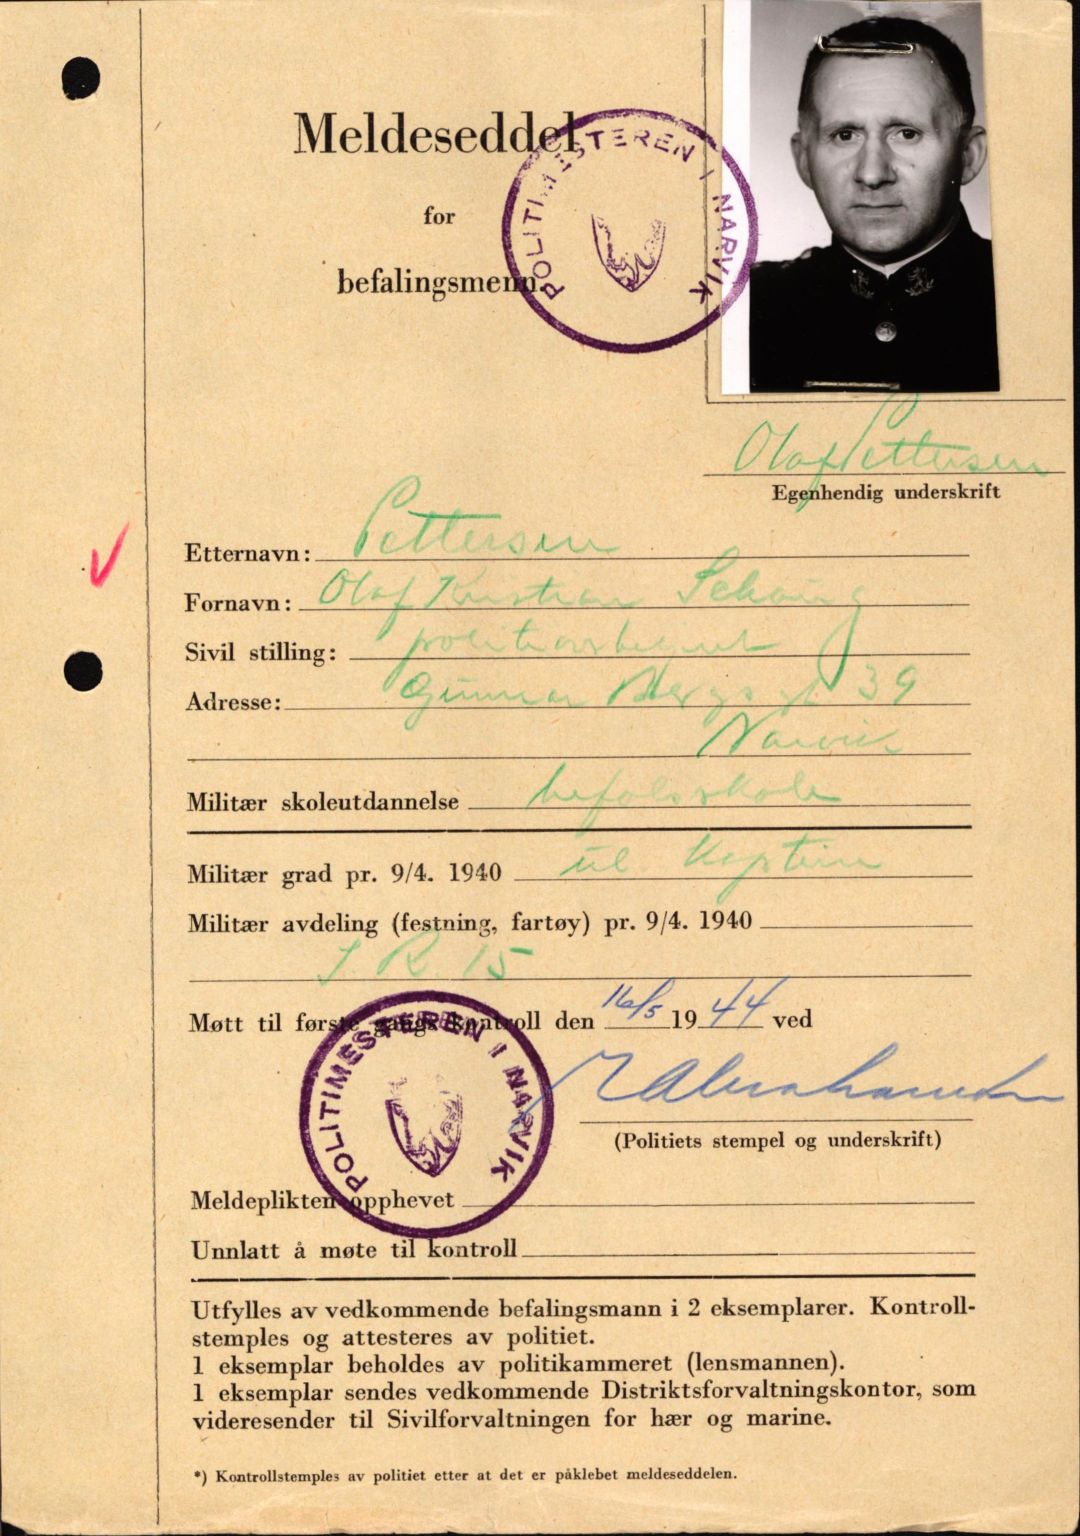 Meldeseddel
for
befalingsmenn.
POLITIMESTEREN I NARVIK
Olaf Pettersen
Egenhendig underskrift
Etternavn: Pettersen
Fornavn: Olaf Kristian
Sivil stilling: politioverbetjent
Adresse: Gunnar Bergs gt 39
Narvik
Militær skoleutdannelse befalsskole
Militær grad pr. 9/4. 1940 til Kaptein
Militær avdeling (festning, fartøy) pr. 9/4. 1940
I. R. 15
Møtt til første gangs kontroll den 16/5 1944 ved
POLITIMESTEREN I NARVIK
(Politiets stempel og underskrift)
Meldeplikten opphevet
Unnlatt å møte til kontroll
Utfylles av vedkommende befalingsmann i 2 eksemplarer. Kontroll-
stemples og attesteres av politiet.
1 eksemplar beholdes av politikammeret (lensmannen).
1 eksemplar sendes vedkommende Distriktsforvaltningskontor, som
videresender til Sivilforvaltningen for hær og marine.
*) Kontrollstemples av politiet etter at det er påklebet meldeseddelen.